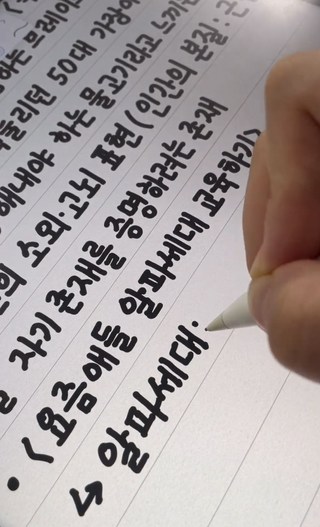 하는
들리던 50대 가장이
해내야 하는 물고기라고 느끼는
의 소외·고뇌 표현 (인간의 본질: 근
자기 존재를 증명하려는 존재
• <요즘애들 알파세대 교육하기>
↳ 알파세대.